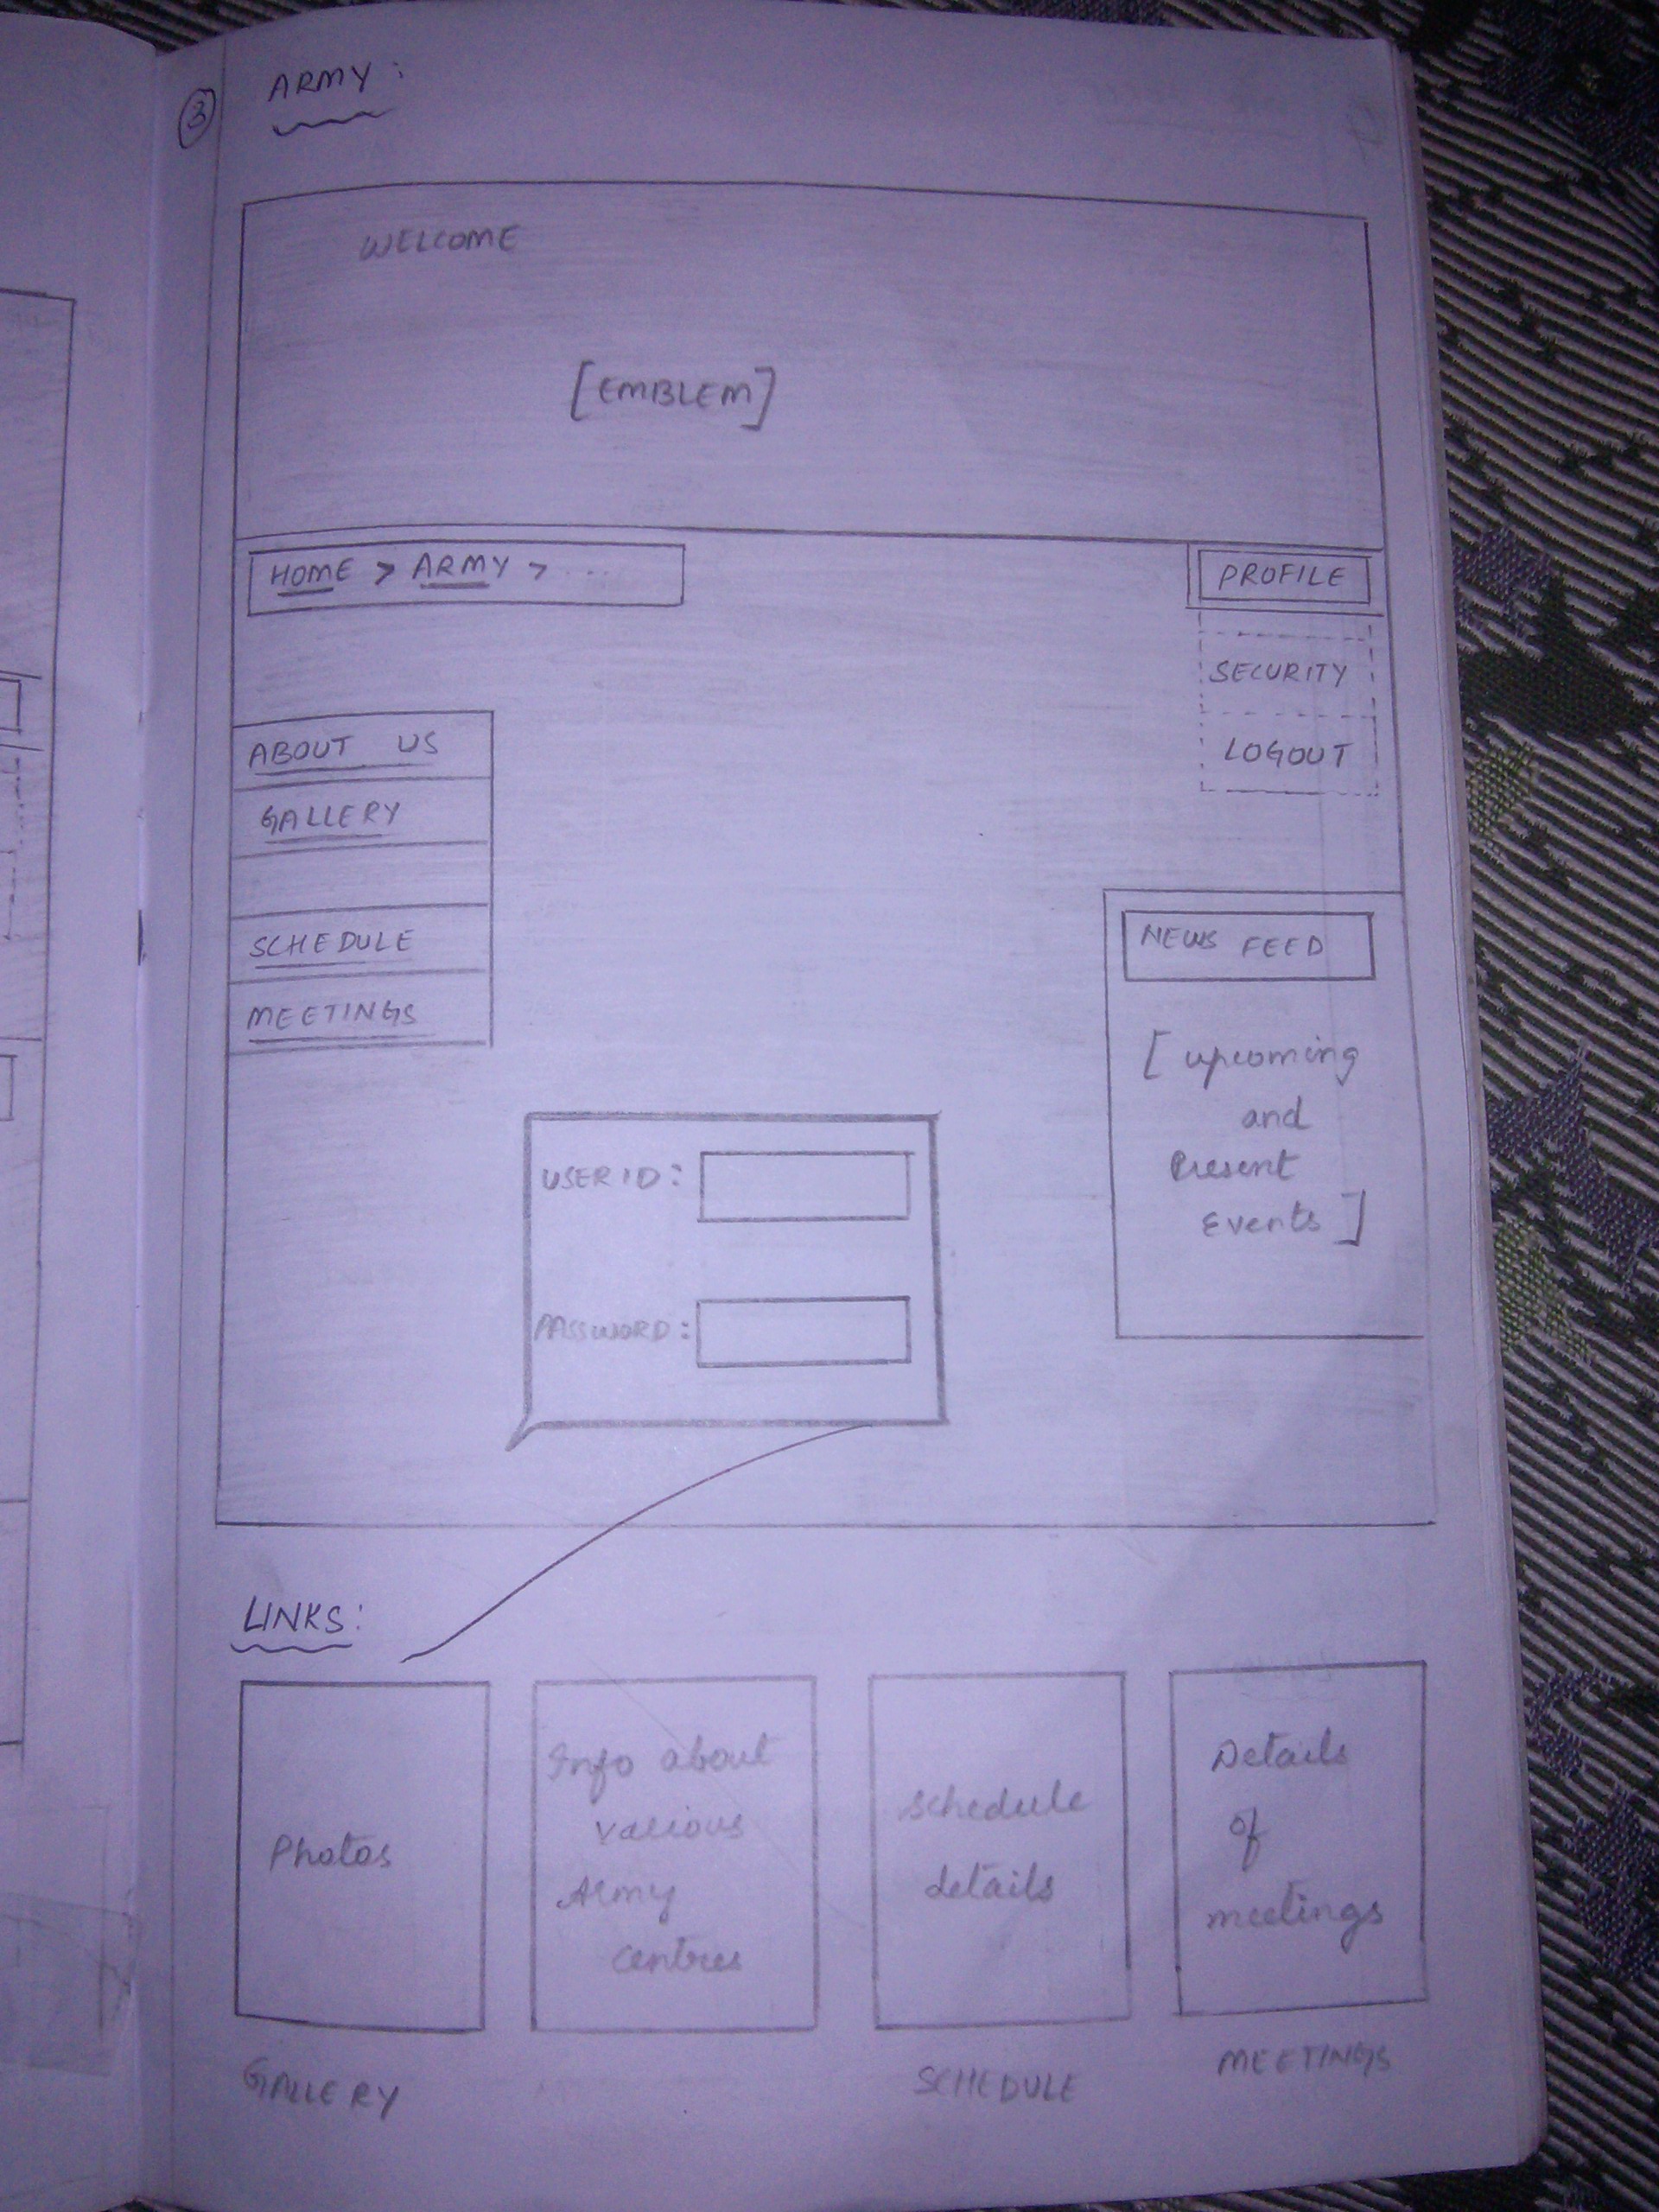 3
ARMY:
WELCOME
[EMBLEM]
HOME > ARMY > ...
PROFILE
SECURITY
LOGOUT
ABOUT US
GALLERY
SCHEDULE
MEETINGS
NEWS FEED
[upcoming
and
Present
Events]
USER ID:
PASSWORD:
LINKS:
Photos
Info about
various
Army
centres
schedule
details
Details
of
meetings
GALLERY
SCHEDULE
MEETINGS